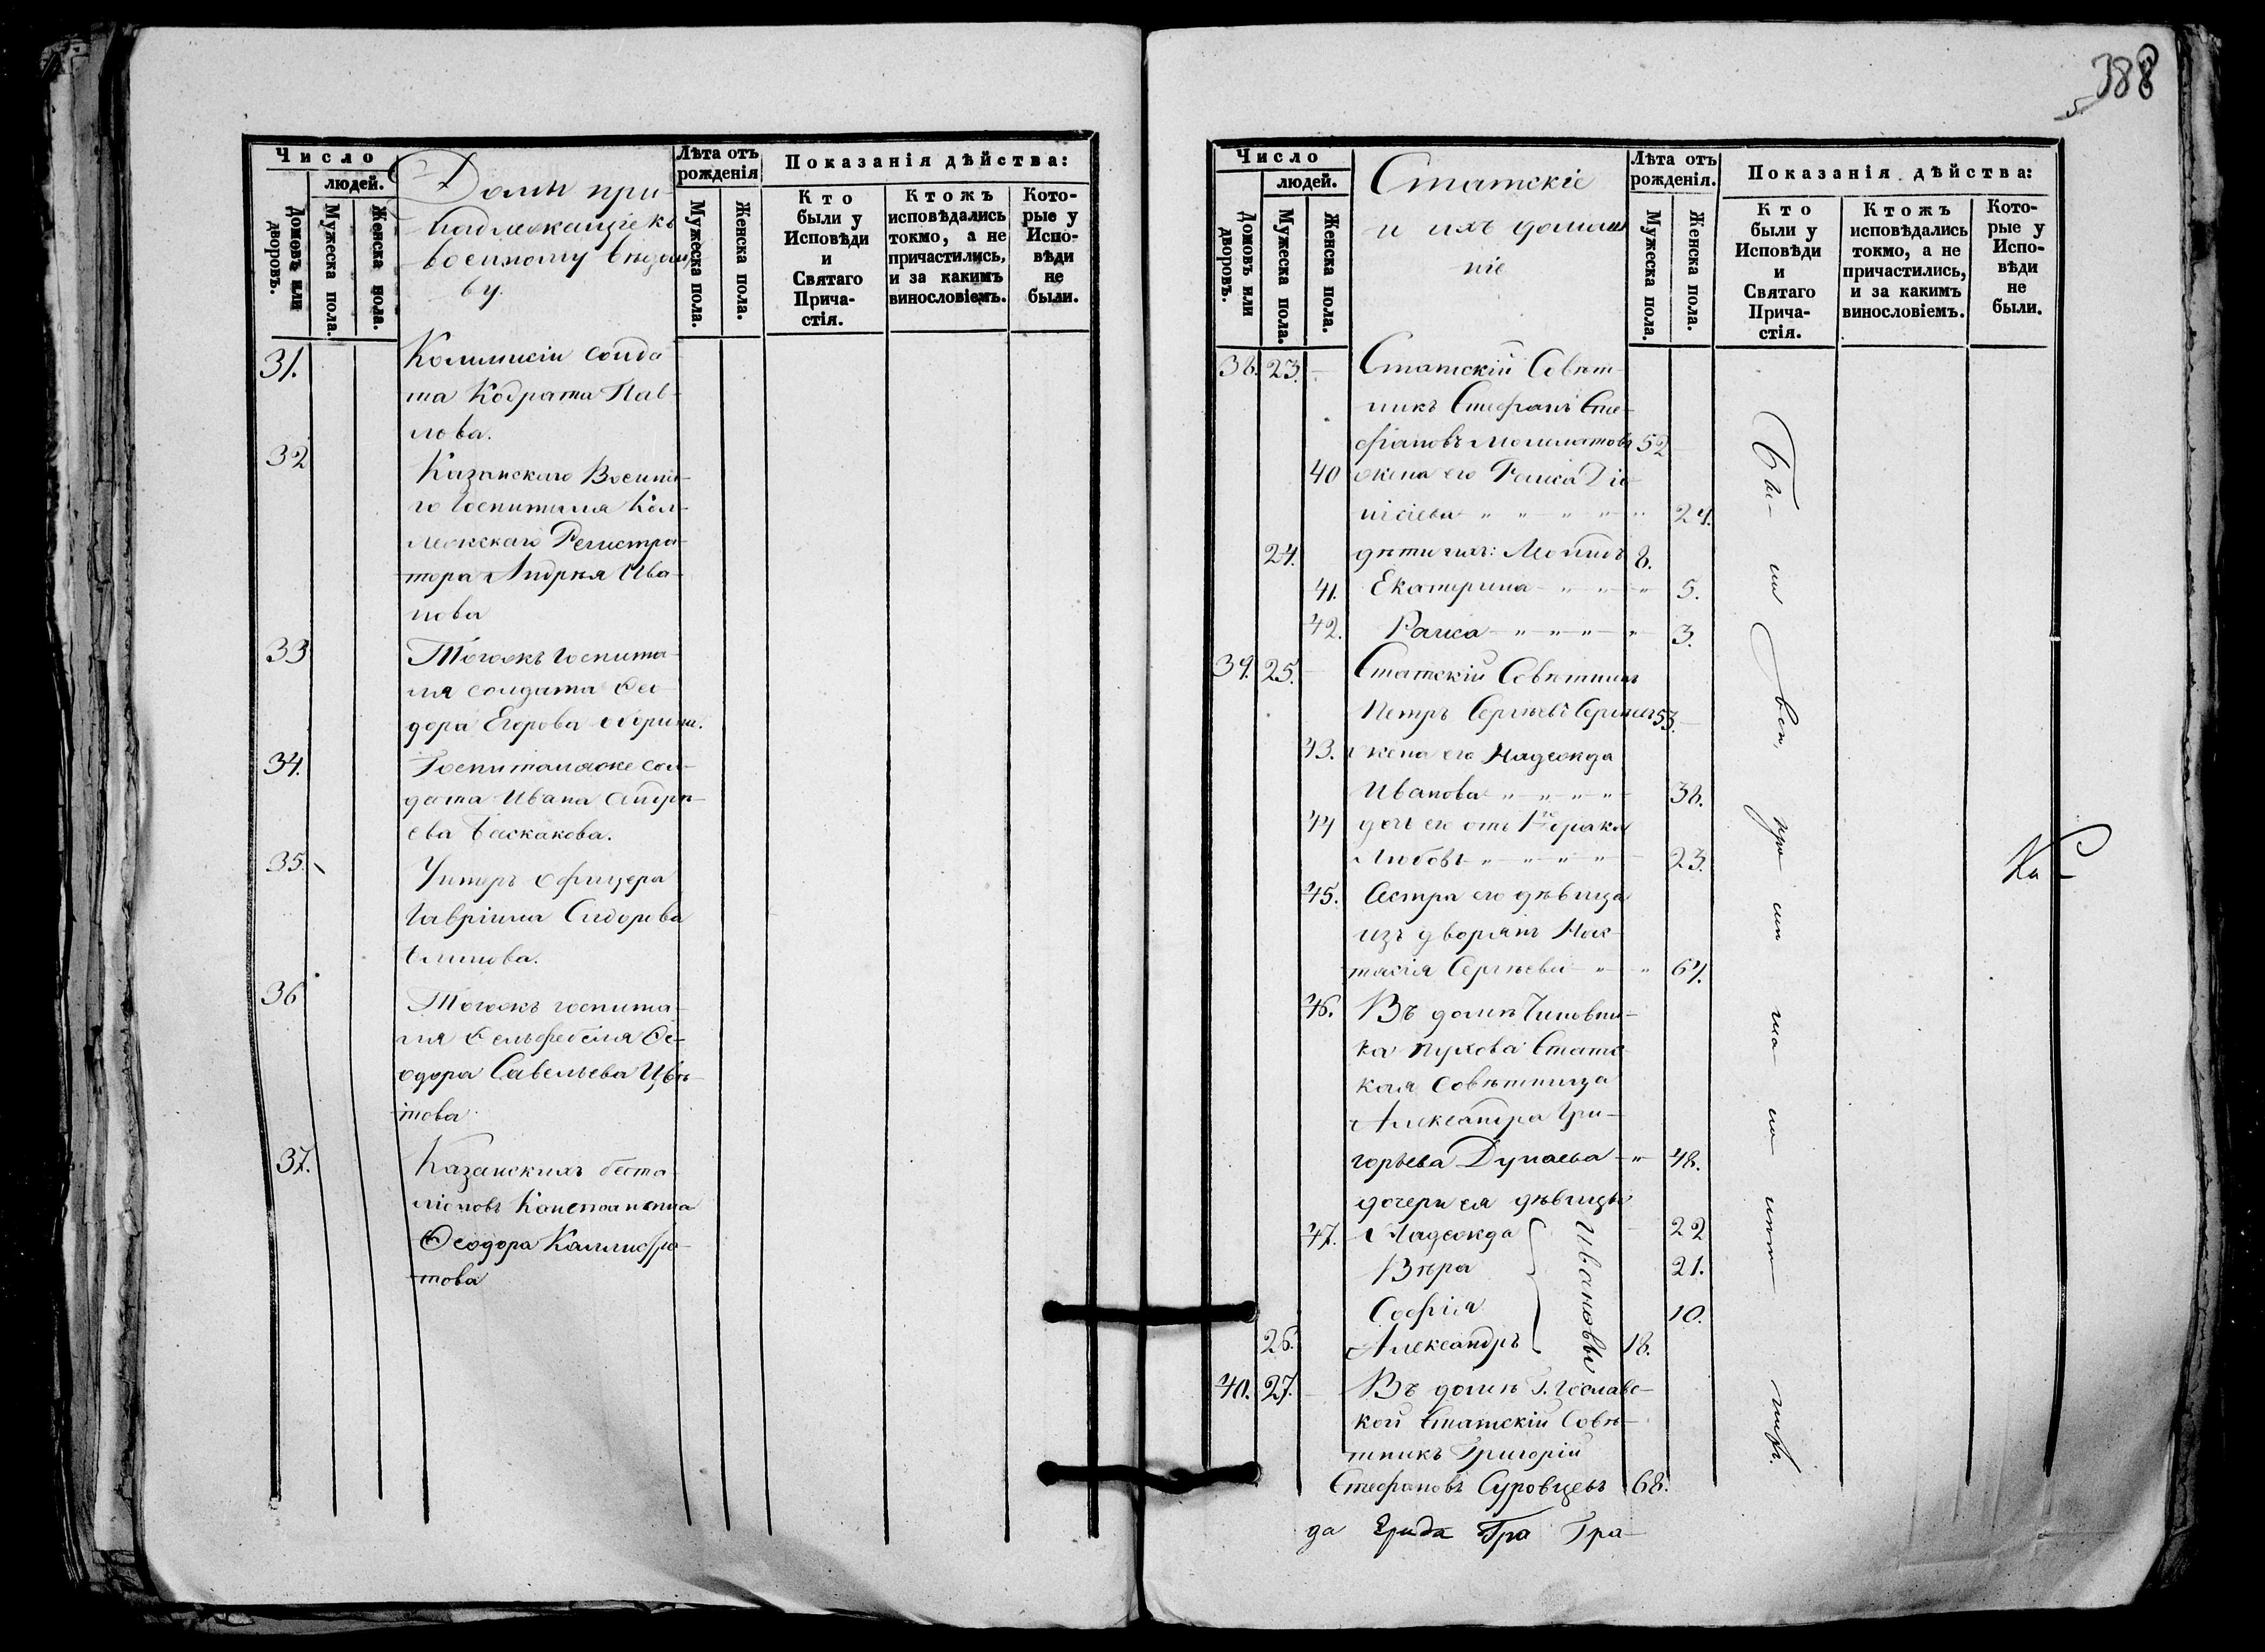 Число
людей.
Домовъ или дворовъ.
Мужеска пола.
Женска пола.
Домы при-
надлежащіе къ
военному вѣдомс
ву.
Лѣта отъ рожденія
Мужеска пола.
Женска пола.
Показанія дѣйства:
Кто были у Исповѣди и Святаго Прича-стія.
Ктожъ исповѣдались токмо, а не причастились, и за какимъ винословіемъ.
Кото-рые у Испо-вѣди не были.
31. Коммисіи солда
та Кодрата Пав-
лова.
32 Казанскаго Военна-
го Госпиталя Кол-
лежскаго Регистра-
тора Андрея Ива-
нова
33 Тогожъ госпита-
ля солдата Ѳео-
дора Егорова
34. Госпиталяже сол-
дата Ивана Андре-
ева Баскакова.
35. Унтеръ офицера
Гавріила Сидорова
Блинова.
36 Тогожъ госпита-
ля Фельдфебеля Ѳе-
одора Савельева Цвѣ-
това
37. Казанскихъ бата-
ліоновъ
Ѳеодора Каллистра-
това
388
Число
людей.
Домовъ или дворовъ.
Мужеска пола.
Женска пола.
Статскіе
и ихъ домаш
ніе
Лѣта отъ рожденія.
Мужеска пола.
Женска пола.
Показанія дѣйства:
Кто были у Исповѣди и Святаго Прича-стія.
Ктожъ исповѣдались токмо, а не причастились, и за какимъ винословіемъ.
Кото-рые у Испо-вѣди не были.
38. 23. Статскій Совѣт-
никъ Стефанъ Сте-
фановъ 52
40 жена его Раиса Діо-
нисіева 24.
24. дѣти ихъ: 8.
41. Екатерина 5.
42. Раиса 3.
39. 25. Статскій Совѣтникъ
Петръ Сергѣевъ Сергѣевъ 53.
43. жена его Надежда
Иванова 38.
44 дочь его отъ 1го брака
Любовь 23.
45. Сестра его дѣвица
изъ дворянъ Нас-
тасія Сергѣева 67.
46. Въ домѣ Чиновни-
ка Пухова Статс
кая Совѣтница
Александра Гри-
горьева Дунаева 48.
дочери ея дѣвицы
47. Надежда 22
Вѣра 21.
Софія 10.
26. Александръ 18.
Ивановы
40. 27. Въ домѣ Г.
кой Статскій Совѣ-
тникъ Григорій
Стефановъ Суровцевъ 68.
да Гра Гра
Бы- ли